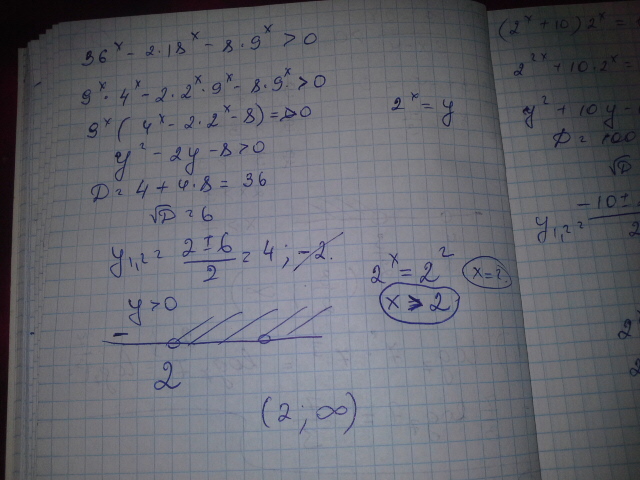 36^x - 2·18^x - 8·9^x > 0
9^x · 4^x - 2·2^x·9^x - 8·9^x > 0
9^x ( 4^x - 2·2^x - 8) = > 0
2^x = y
y^2 - 2y - 8 > 0
D = 4 + 4·8 = 36
√D = 6
y_{1,2} = (2 ± 6)/2 = 4 ; -2.
2^x = 2^2
x = 2
x > 2
y > 0
-
2
(2 ; ∞)
(2^x + 10) 2^x =
2^{2x} + 10·2^x =
y^2 + 10y -
D = 100
√D
y_{1,2} = (-10 ±)/2
2
2